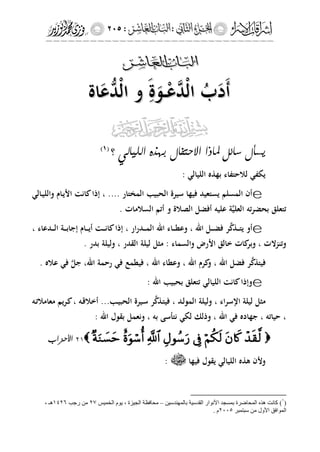 إشراقات الإسراء : الجزء الثاني : الباب العاشر : ٢٠٥ فوزي محمد أبوزيد
الباب العاشر
أَدَبُ الدَّعْوَةِ و الْدُّعَاة
يسأل سائل لماذا الاحتفال بهذه الليالي ؟(١)
يكفي للاحتفاء بهذه الليالي :
أن المسلم يستعيد فيها سيرة الحبيب المختار .... ، إذا كانت الأيام والليالي
تتعلق بحضرته العليَّة عليه أفضل الصلاة و أتم السلامات .
أو يتذكَّر فضل الله ، وعطاء الله المدرار ، إذا كانت أيام إجابة الدعاء ،
وتنزلات ، وبركات خالق الأرض والسماء : مثل ليلة القدر ، وليلة بدر .
فيتذكَّر فضل الله ، وكرم الله ، وعطاء الله ، فيطمع في رحمة الله، جلَّ في علاه .
وإذا كانت الليالي تتعلق بحبيب الله :
مثل ليلة الإسراء ، وليلة المولد ، فيتذكَّر سيرة الحبيب... أخلاقه ، كريم معاملاته
، حياته ، جهاده في الله ، وذلك لكي نتأسى به ، ونعمل بقول الله :
﴿ لَّقَدْ كَانَ لَكُمْ فِى رَسُولِ ٱللَّهِ أُسْوَةٌ حَسَنَةٌ ﴾ ٢١ الأحزاب
ولأن هذه الليالي يقول فيها :
(١) كانت هذه المحاضرة بمسجد الأنوار القدسية بالمهندسين – محافظة الجيزة ، يوم الخميس ٢٧ من رجب ١٤٢٦هـ ،
الموافق الأول من سبتمبر ٢٠٠٥م .